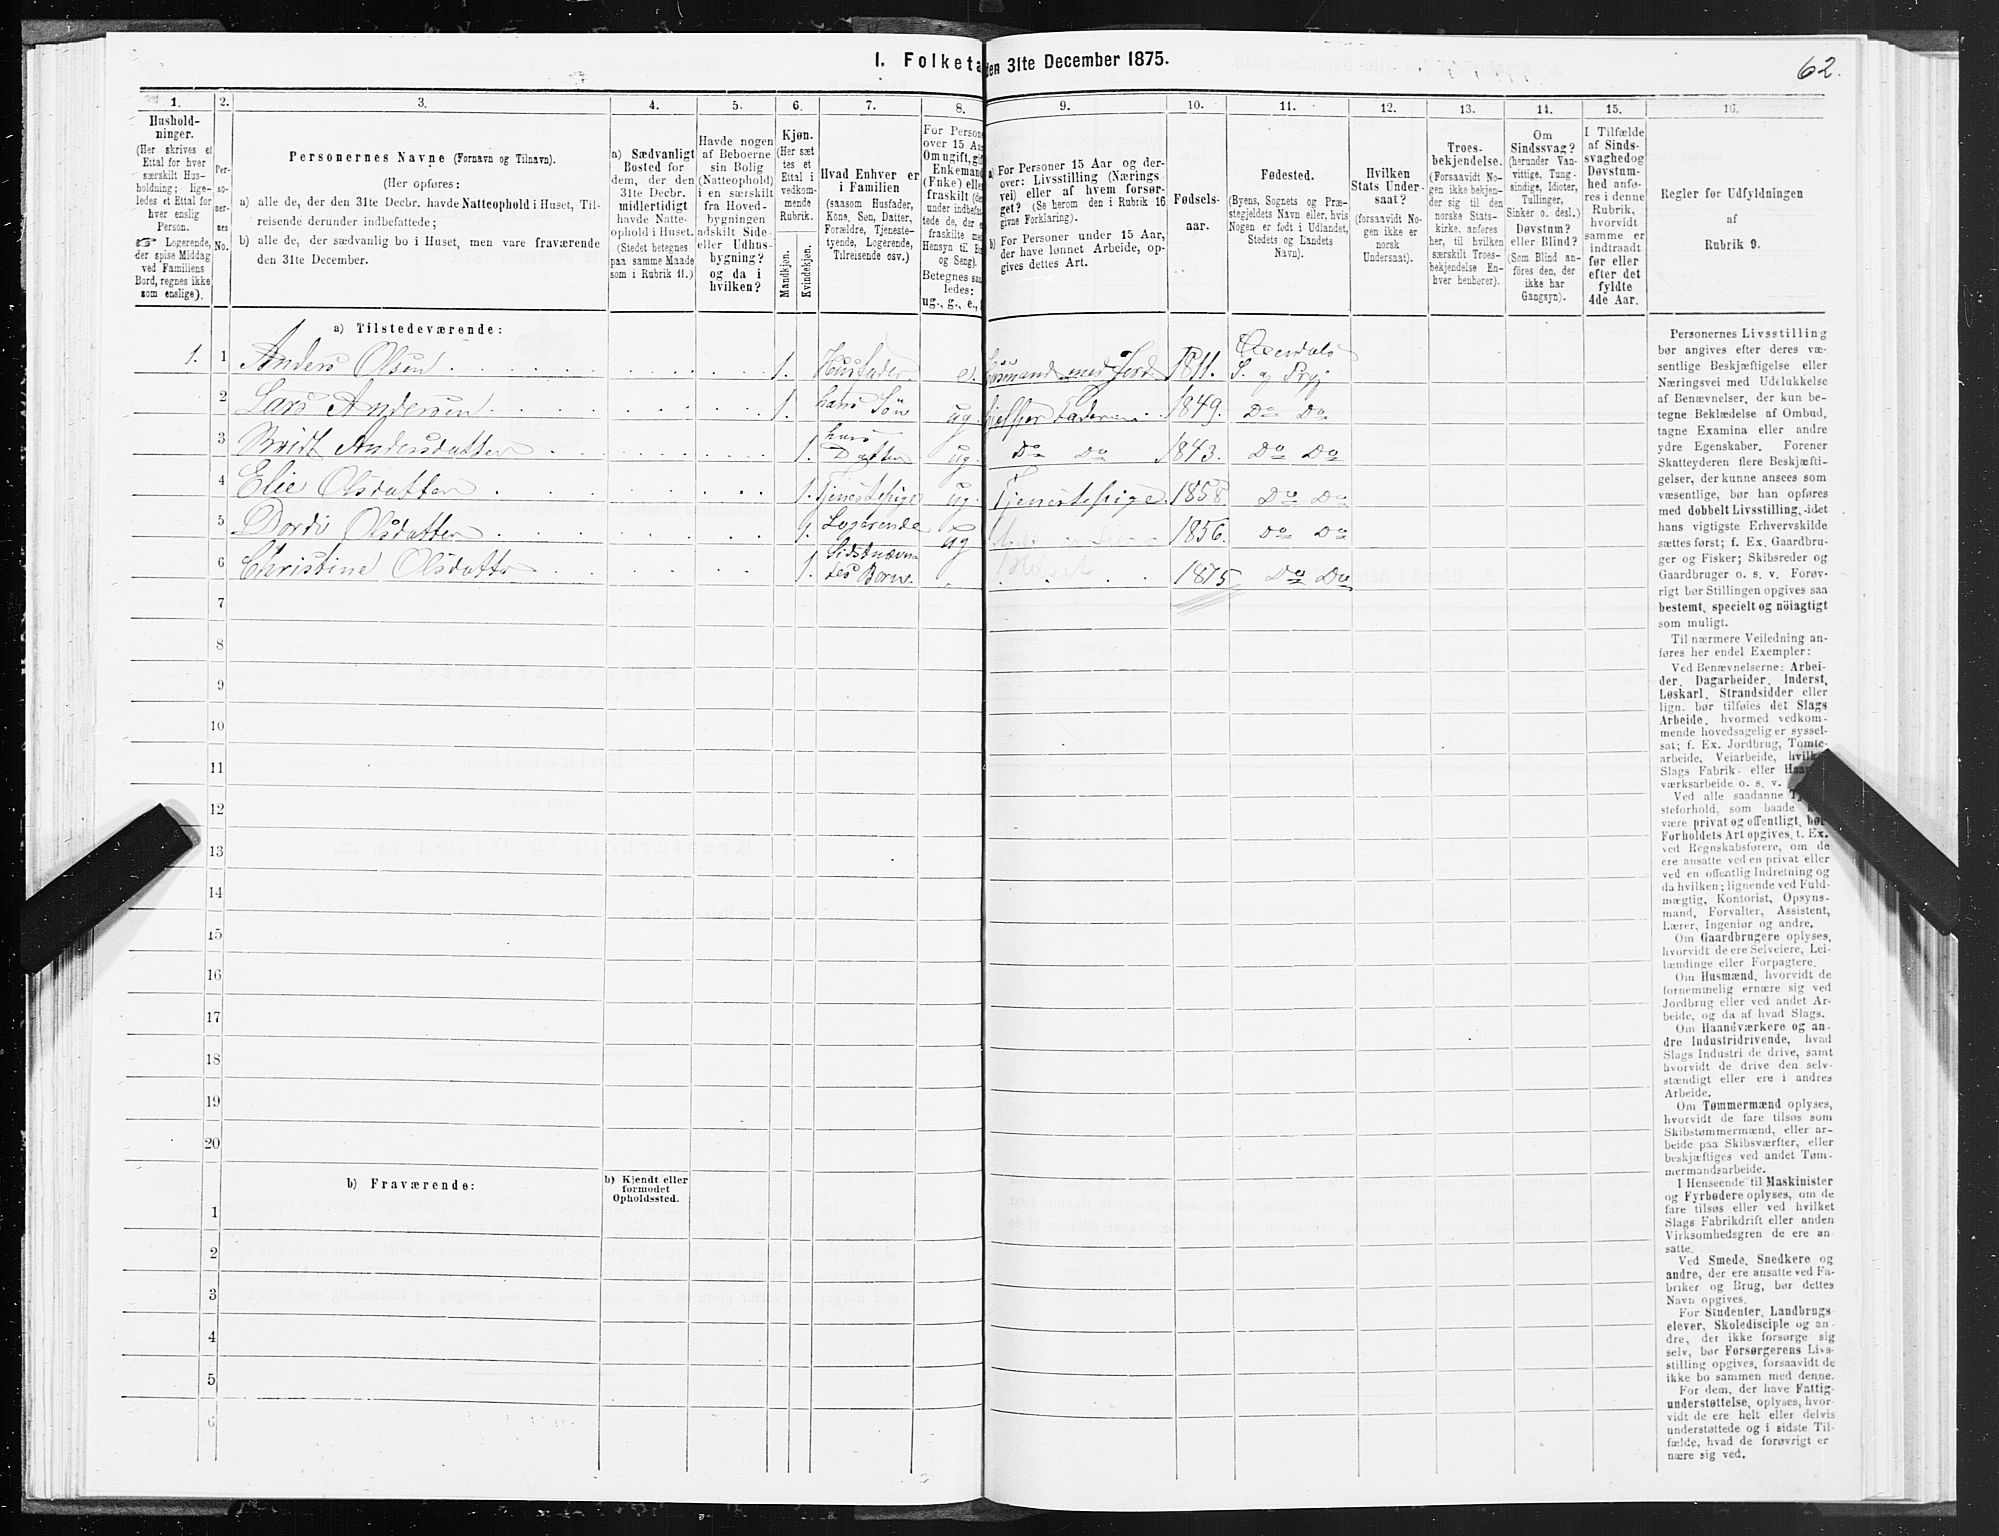 I. Folketæ
den 31te December 1875.
62.
1.
2.
3.
4.
5.
6.
7.
8.
9.
10.
11.
12.
13.
14.
15.
16.
Hushold-
ninger.
(Her skrives et
Ettal for hver
særskilt Hus-
holdning; lige-
ledes et Ettal for
hver enslig
Person.
☞ Logerende,
der spise Middag
ved Familiens
Bord, regnes ikke
som enslige).
Per-
so-
ner-
nes
No.
Personernes Navne (Fornavn og Tilnavn).
(Her opføres:
a) alle de, der den 31te Decbr. havde Natteophold i Huset, Til-
reisende derunder indbefattede;
b) alle de, der sædvanlig bo i Huset, men vare fraværende
den 31te December.
a) Sædvanligt
Bosted for
dem, der den
31te Decbr.
midlertidigt
havde Natte-
ophold i Huset.
(Stedet betegnes
paa samme Maade
som i Rubrik 11.)
Havde nogen
af Beboerne
sin Bolig
(Natteophold)
i en særskilt
fra Hoved-
bygningen
adskilt Side-
eller Udhus-
bygning?
og da i
hvilken?
Kjøn.
(Her sæt-
tes et
Ettal i
vedkom-
mende
Rubrik.
Mandkjøn.
Kvindekjøn.
Hvad Enhver er
i Familien
(saasom Husfader,
Kone, Søn, Datter,
Forældre, Tjeneste-
tyende, Logerende,
Tilreisende osv.)
For Person
over 15 Aa
Om ugift, gif
Enkemand
(Enke) eller
fraskilt (de
under indbefat
tede de, der e
fraskilte med
Hensyn til B
og Seng).
Betegnes saa
ledes:
ug., g., e.,
a) For Personer 15 Aar og der-
over: Livsstilling (Nærings-
vei) eller af hvem forsør-
get? (Se herom den i Rubrik 16
givne Forklaring).
b) For Personer under 15 Aar,
der have lønnet Arbeide, op-
gives dettes Art.
Fødsels-
aar.
Fødested.
(Byens, Sognets og Præ-
stegjeldets Navn eller, hvis
Nogen er født i Udlandet,
Stedets og Landets
Navn).
Hvilken
Stats Under-
saat?
(forsaavidt No-
gen ikke er
norsk
Undersaat).
Troes-
bekjendelse.
(Forsaavidt No-
gen ikke bekjen-
der sig til den
norske Stats-
kirke, anføres
her, til hvilken
særskilt Troes-
bekjendelse En-
hver henhører).
Om
Sindssvag?
(herunder Van-
vittige, Tung-
sindige, Idioter,
Tullinger,
Sinker o. desl.)
Døvstum?
eller Blind?
(Som Blind an-
føres den, der
ikke har
Gangsyn).
I Tilfælde
af Sinds-
svaghed og
Døvstum-
hed anfø-
res i denne
Rubrik,
hvorvidt
samme er
indtraadt
før eller
efter det
fyldte
4de Aar.
Regler før Udfyldningen
af
Rubrik 9.
a) Tilstedeværende:
1. 1 Anders Olsen 1. Husfader e. Husmand med Jord 1811. S. og Prgj
2 Lars Andersen 1. hans Sön ug. hjelper Faderen 1849. Do Do
3 Bridt Andersdatter 1. hans Datter ug. Do Do 1843. Do Do
4 Elie Olsdatter 1. Tjenestepige ug. Tjenestepige. 1858 Do Do
5 Dordi Olsdatter 1. Logerende ug 1856. Do Do
6 Christine Olsdatter 1. Sidstnævn- tes Barn. 1875 Do Do
7
8
9
10
11
12
13
14
15
16
17
18
19
20
b) Fraværende:
b) Kjendt eller
formodet
Opholdssted.
1
2
3
4
5
6
Personernes Livsstilling
bør angives efter deres væ-
sentlige Beskjæftigelse eller
Næringsvei med Udelukkelse
af Benævnelser, der kun be-
tegne Beklædelse af Ombud,
tagne Examina eller andre
ydre Egenskaber. Forener
Skatteyderen flere Beskjæfti-
gelser, der kunne ansees som
væsentlige, bør han opføres
med dobbelt Livsstilling, idet
hans vigtigste Erhvervskilde
sættes først; f. Ex. Gaardbru-
ger og Fisker; Skibsreder og
Gaardbruger o. s. v. Forøv-
rigt bør Stillingen opgives saa
bestemt, specielt og nöiagtigt
som muligt.
Til nærmere Veiledning an-
føres her endel Exempler:
Ved Benævnelserne: Arbei-
der, Dagarbeider, Inderst,
Løskarl, Strandsidder eller
lign. bør tilføies det Slags
Arbeide, hvormed vedkom-
mende hovedsagelig er syssel-
sat; f. Ex. Jordbrug, Tomte-
arbeide, Veiarbeide, hvilket
Slags Fabrik- eller Haand-
værksarbeide o. s. v.
Ved alle saadanne Tje-
steforhold, som baade kan
være privat og offentligt, bør
Forholdets Art opgives, t. Ex.
ved Regnskabsførere, om de
ere ansatte ved en privat eller
ved en offentlig Indretning og
da hvilken; lignende ved Fuld-
mægtig, Kontorist, Opsyns-
mand, Forvalter, Assistent,
Lærer, Ingeniør og andre.
Om Gaardbrugere oplyses,
hvorvidt de ere Selveiere, Lei-
lændinge eller Forpagtere.
Om Husmænd, hvorvidt de
fornemmelig ernære sig ved
Jordbrug eller ved andet Ar-
beide, og da af hvad Slags.
Om Haandværkere og an-
dre Industridrivende, hvad
Slags Industri de drive, samt
hvorvidt de drive den selv-
stændigt eller ere i andres
Arbeide.
Om Tømmermænd oplyses,
hvorvidt de fare tilsøs som
Skibstømmermænd, eller ar-
beide paa Skibsværfter, eller
beskjæftiges ved andet Tøm-
mermandsarbeide.
I Henseende til Maskinister
og Fyrbødere oplyses, om de
fare tilsøs eller ved hvilket
Slags Fabrikdrift eller anden
Virksomhedsgren de ere an-
satte.
Ved Smede, Snedkere og
andre, der ere ansatte ved Fa-
briker og Brug, bør dettes
Navn opgives.
For Studenter, Landbrugs-
elever, Skoledisciple og an-
dre, der ikke forsørge sig
selv, bør Forsørgerens Livs-
stilling opgives, forsaavidt de
ikke bo sammen med denne.
For dem, der have Fattig-
understøttelse, oplyses, hvor-
vidt de ere helt eller delvis
understøttede og i sidste Til-
fælde, hvad de forøvrigt er
nære sig ved.